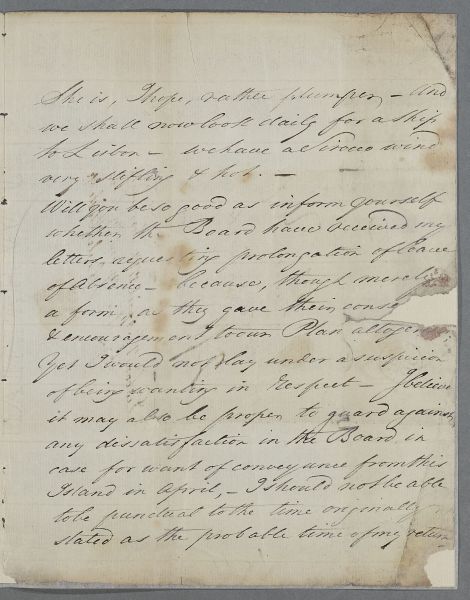 She is, I hope, rather plumper, – and
we shall now look daily for a ship
to Lisbon – we have a Sirocco wind
very stifling & hot. –
Will you be so good as inform yourself
whether the Board have received my
letters, requesting prolongation of leave
of Absence – because, though merely
a form, as they gave their conse
& encouragement to our Plan altogether
Yet I would not lay under a suspicion
of being wanting in Respect – I believe
it may also be proper to guard against
any dissatisfaction in the Board in
case for want of conveyance from this
Island in April, – I should not be able
to be punctual to the time originally
stated as the probable time of my return